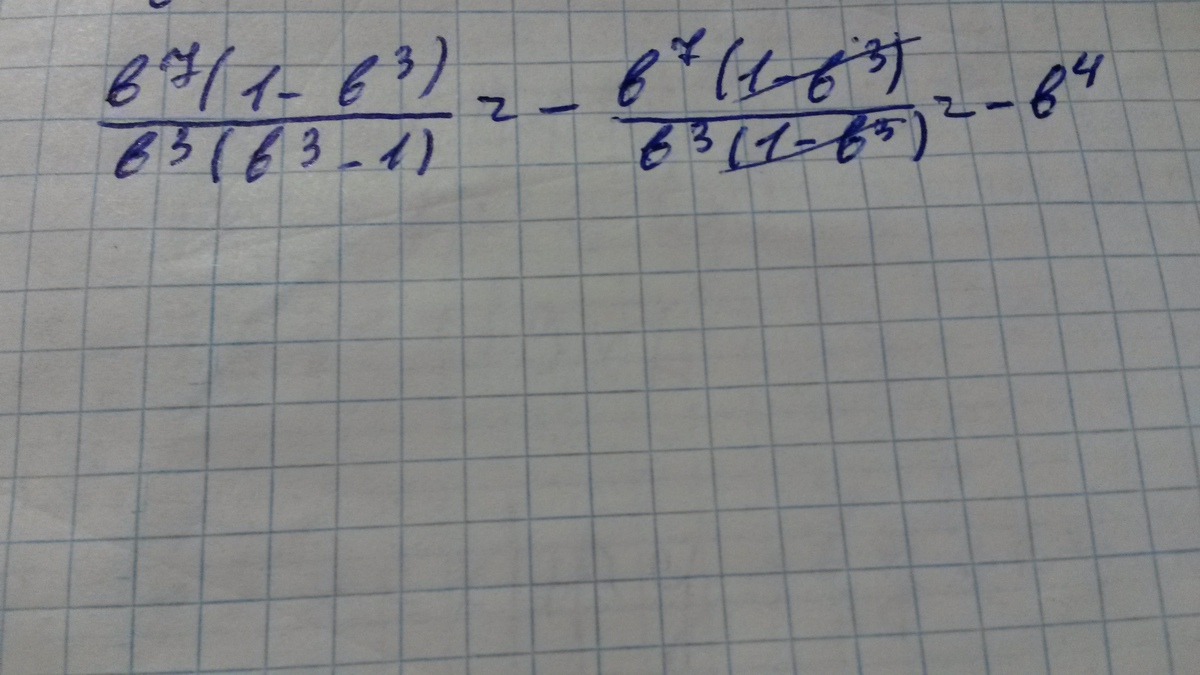 в⁷(1-в³)/в³(в³-1) = - в⁷(1-в³)/в³(1-в³) = -в⁴